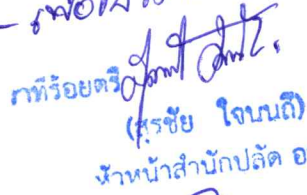 - เพื่อโปรด
ว่าที่ร้อยตรี
(สุรชัย ใจนนถี)
หัวหน้าสำนักปลัด อ